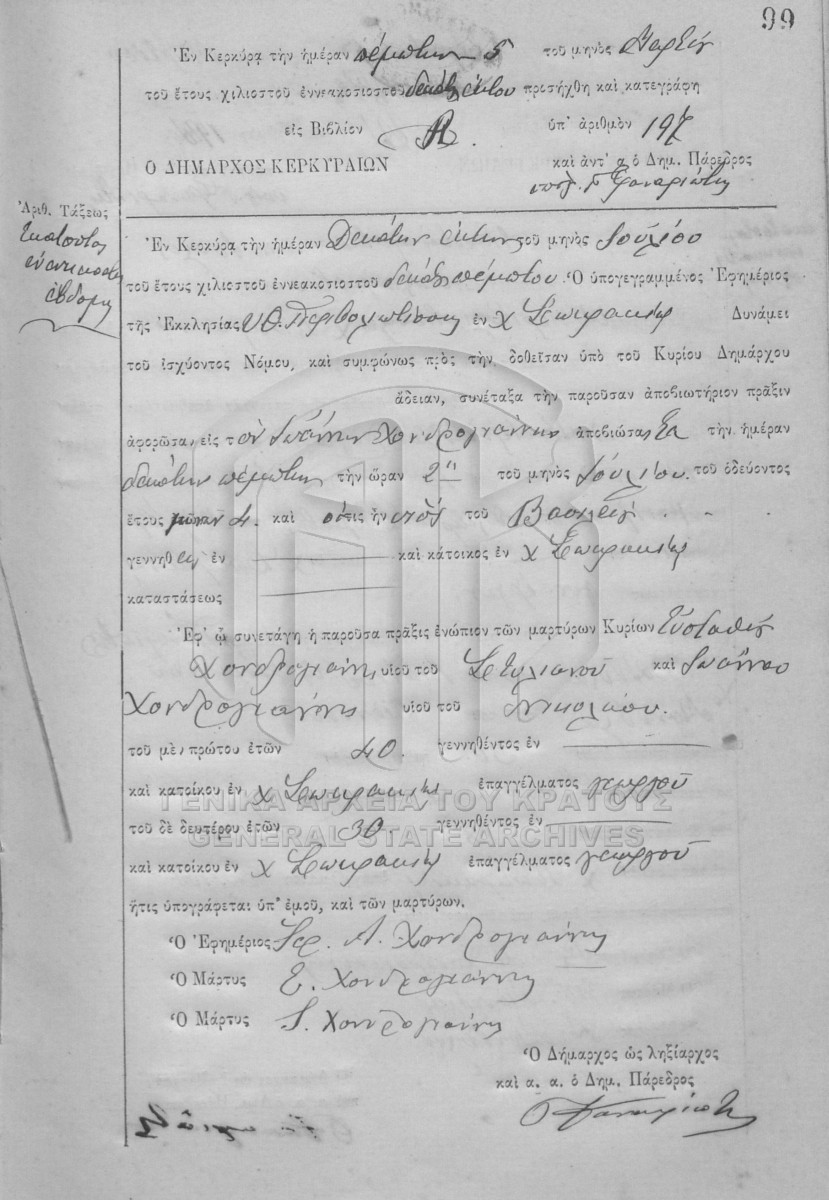 99
Ἐν Κερκύρᾳ τὴν ἡμέραν πέμπτην 5 τοῦ μηνὸς Μαρτίου
τοῦ ἔτους χιλιοστοῦ ἐννεακοσιοστοῦ δεκάτου ἕκτου προσήχθη καὶ κατεγράφη
εἰς Βιβλίον Α ὑπ' ἀριθμὸν 197
Ο ΔΗΜΑΡΧΟΣ ΚΕΡΚΥΡΑΙΩΝ καὶ ἀντ' α ὁ Δημ. Πάρεδρος
Φαναριώτης
Ἀριθ. Τάξεως
Ἑκατοστὸς
ἐνενηκοστὸς
ἕβδομη
Ἐν Κερκύρᾳ τὴν ἡμέραν Δεκάτην ἕκτην τοῦ μηνὸς Ἰουλίου
τοῦ ἔτους χιλιοστοῦ ἐννεακοσιοστοῦ δεκάτου πέμπτου. Ὁ ὑπογεγραμμένος Ἐφημέριος
τῆς Ἐκκλησίας Υ. Θ. Περιβολιωτίσσης ἐν χ Σωκρακίῳ Δυνάμει
τοῦ ἰσχύοντος Νόμου, καὶ συμφώνως πρὸς τὴν δοθεῖσαν ὑπὸ τοῦ Κυρίου Δημάρχου
ἄδειαν, συνέταξα τὴν παροῦσαν ἀποβιωτήριον πρᾶξιν
ἀφορῶσαν εἰς τὸν Ἰωάννην Χονδρογιάννην ἀποβιώσαντα τὴν ἡμέραν
δεκάτην πέμπτην τὴν ὥραν 2 τοῦ μηνὸς Ἰουλίου. τοῦ ὁδεύοντος
ἔτους 4. καὶ ὅστις ἦν υἱὸς τοῦ Βασιλείου
γεννηθεὶς ἐν καὶ κάτοικος ἐν χ Σωκρακίῳ
καταστάσεως
Ἐφ' ᾧ συνετάγη ἡ παροῦσα πρᾶξις ἐνώπιον τῶν μαρτύρων Κυρίων Εὐσταθίου
Χονδρογιάννη υἱοῦ τοῦ Στυλιανοῦ καὶ Ἰωάννου
Χονδρογιάννης υἱοῦ τοῦ Νικολάου.
τοῦ μὲν πρώτου ἐτῶν 40. γεννηθέντος ἐν
καὶ κατοίκου ἐν χ Σωκρακίῳ ἐπαγγέλματος γεωργοῦ
τοῦ δὲ δευτέρου ἐτῶν 30 γεννηθέντος ἐν
καὶ κατοίκου ἐν χ Σωκρακίῳ ἐπαγγέλματος γεωργοῦ
ἥτις ὑπογράφεται ὑπ' ἐμοῦ, καὶ τῶν μαρτύρων.
Ὁ Ἐφημέριος Ἱερ. Λ. Χονδρογιάννης
Ὁ Μάρτυς Ε. Χονδρογιάννης
Ὁ Μάρτυς Ι. Χονδρογιάννης
Ὁ Δήμαρχος ὡς ληξίαρχος
καὶ α. α. ὁ Δημ. Πάρεδρος
Φαναριώτης
ΓΕΝΙΚΑ ΑΡΧΕΙΑ ΤΟΥ ΚΡΑΤΟΥΣ
GENERAL STATE ARCHIVES